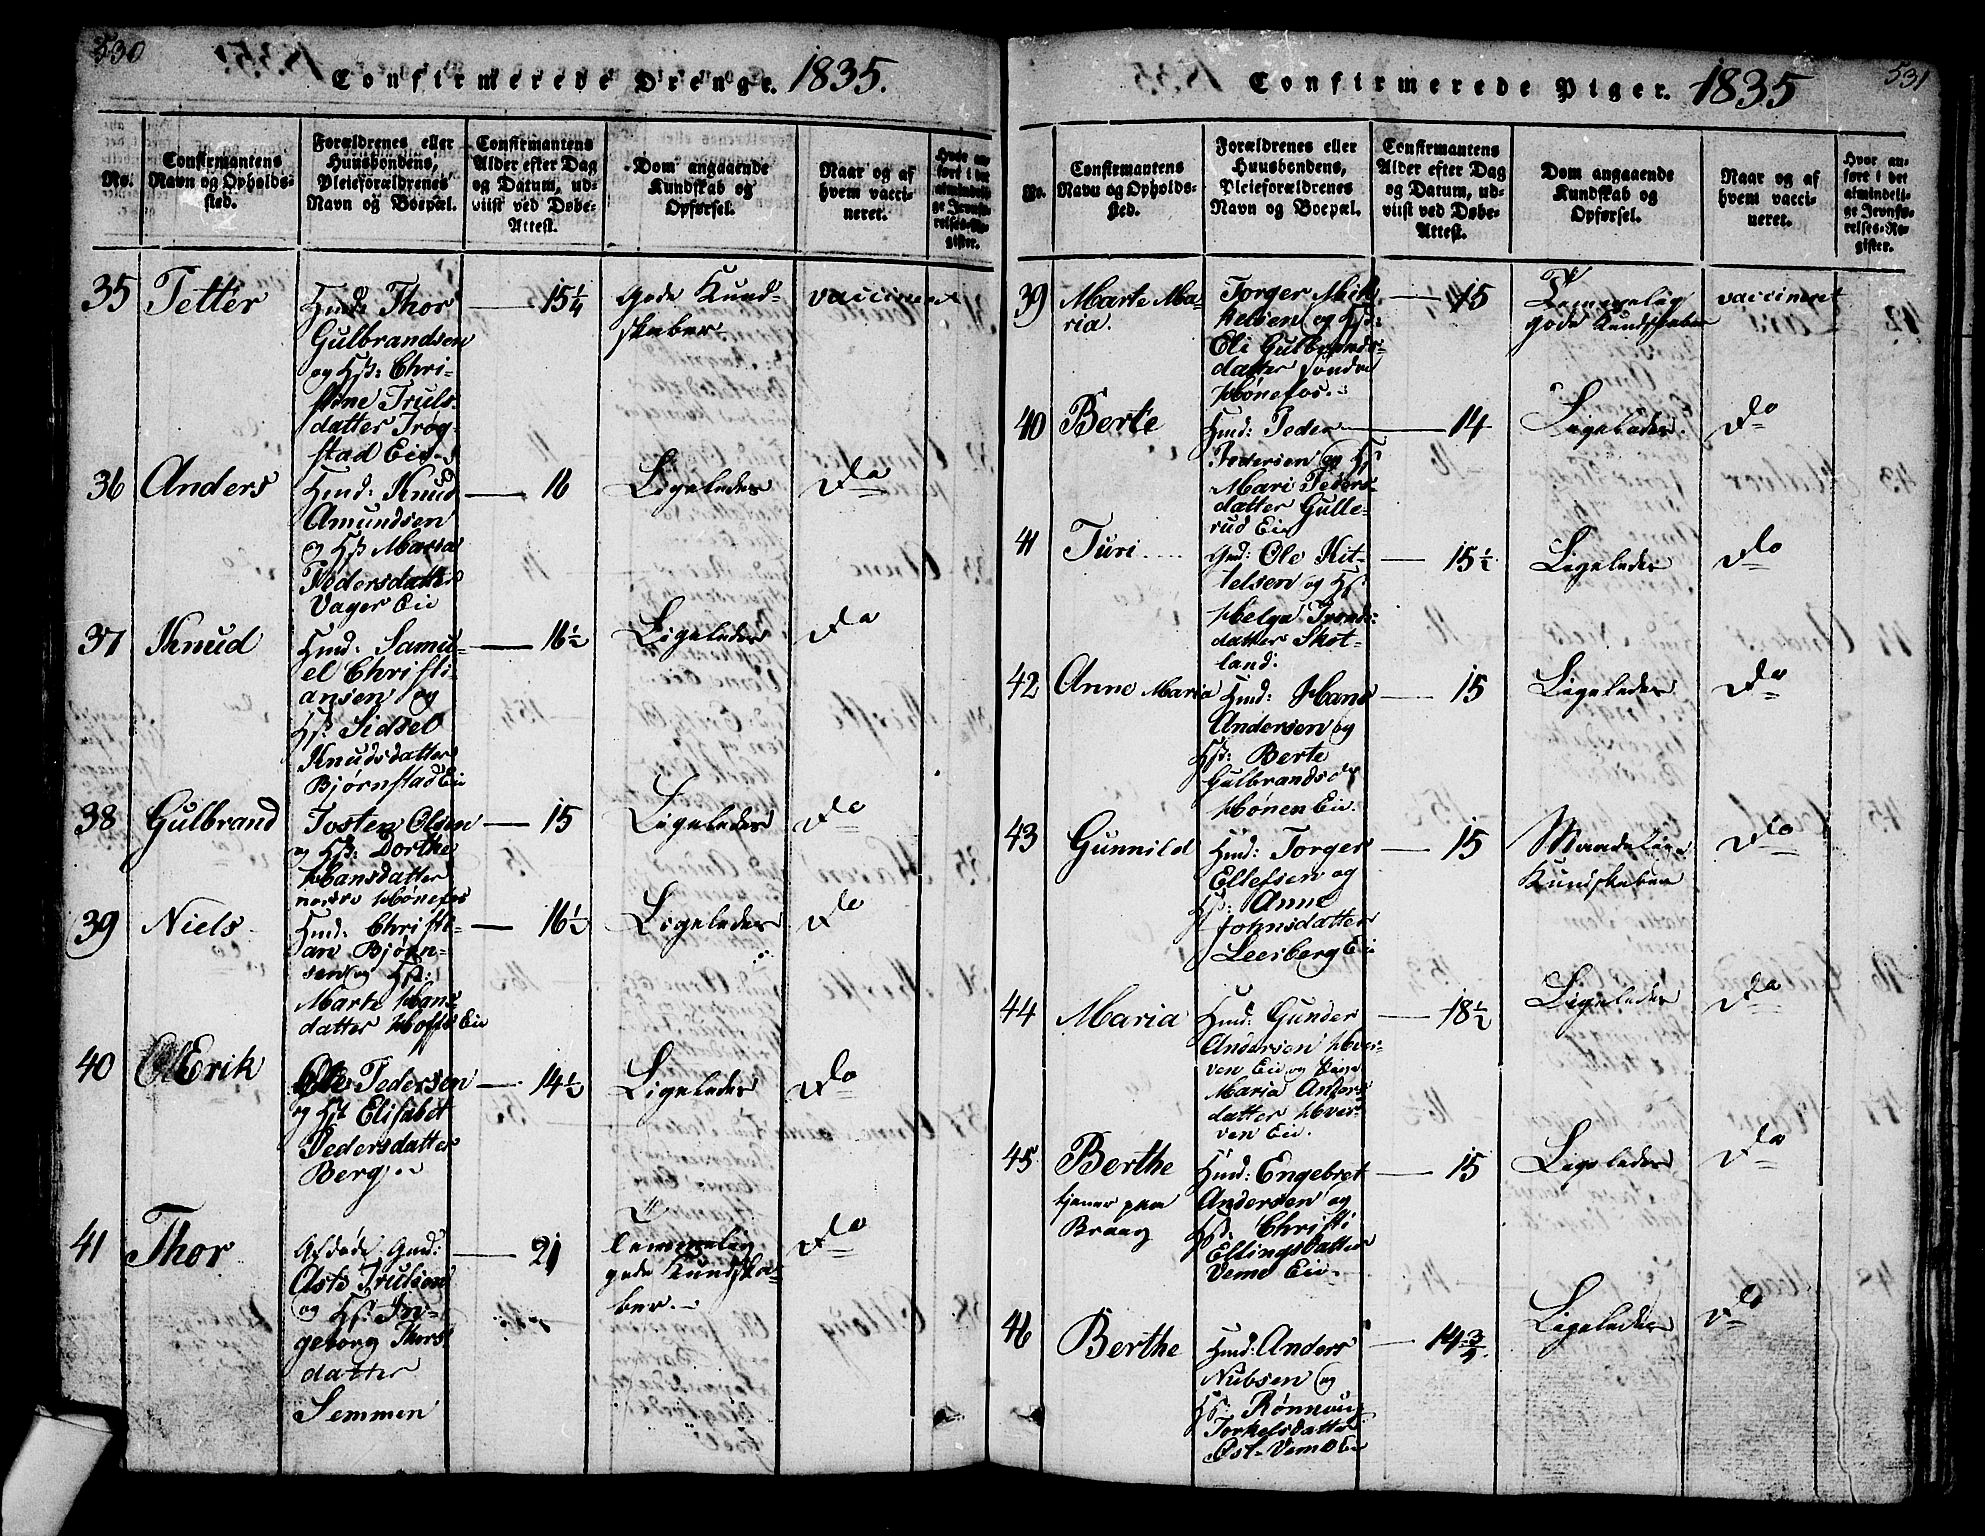 530
Confirmerede Drenge. 1835.
No.
Confirmantens
Navn og Opholds-
sted.
Forældrenes eller
Huusbondens,
Pleieforældrenes
Navn og Boepæl.
Confirmantens
Alder efter Dag
og Datum, ud-
viist ved Døbe-
Attest.
Dom angaaende
Kundskab og
Opførsel.
Naar og af
hvem vacci-
neret.
Hvor an-
føre i det
almindeli-
ge Jevnfø-
relses-Re-
gister.
35 Petter
Hmd: Thor
Gulbrandsen
og Hst: Chri-
stine Truls-
datter Trøg-
stad Eie
15¼
gode Kund-
skaber
vaccineret
36 Anders
Hmd: Knud
Amundsen
og Hst Maria
Pedersdatter
Vager Eie
16
Ligeledes
Do
37 Knud
Hmd: Samu-
el Christi-
ansen og
Hst: Sidsel
Knudsdatter
Bjørnstad Eie
16½
Ligeledes
Do
38 Gulbrand
Tosten Olsen
og Hst: Dorthe
Hansdatter
nordre Hønefos
15
Ligeledes
Do
39 Niels
Hmd: Christi-
an Bjørn-
sen og Hst:
Marte Hans
datter Hofs Eie
16½
Ligeledes
Do
40 Erik
Ole Pedersen
og Hst Elisabet
Pedersdatter
Berg
14½
Ligeledes
Do
41 Thor
Afdøde Gmd:
Asle Trulsen
og Hst: In-
geborg Thors
datter
Semmen
21
Temmelig
gode Kundska-
ber
Do
531
Confirmerede Piger. 1835
No.
Confirmantens
Navn og Opholds-
sted.
Forældrenes eller
Huusbondens,
Pleieforældrenes
Navn og Boepæl.
Confirmantens
Alder efter Dag
og Datum, ud-
viist ved Døbe-
Attest.
Dom angaaende
Kundskab og
Opførsel.
Naar og af
hvem vacci-
neret.
Hvor an-
føre i det
almindeli-
ge Jevnfø-
relses-Re-
gister.
39 Marte Ma-
ria.
Torger Mich
kelsen og Hst:
Eli Gulbrands-
datter søndre
Hønefos.
15
Temmelig
gode Kundskaber
vaccineret
40 Berte
Hmd: Peder
Pedersen og Hst
Mari Peders-
datter Gulle-
rud Eie
14
Ligeledes.
Do
41 Turi
Gmd: Ole Kit-
telsen og Hst
Helga Tronds-
datter Skot-
land.
15½
Ligeledes
Do
42 Anne Maria
Hmd: Hans
Andersen og
Hst: Berte
Gulbrandsdr
Hønen Eie.
15
Ligeledes
Do
43 Gunnild
Hmd: Torger
Ellefsen og
Hst: Anne
Johnsdatter
Leeiberg Eie
15
Maadelige
Kundskaber
Do
44 Maria
Hmd: Gunder
Andersen Hver-
ven Eie og Pige
Maria Anders
datter Hver-
ven Eie.
18½
Ligeledes
Do
45 Berthe
tjener paa
Braag
Hmd: Engebret
Andersen og
Hst: Christi
Ellingsdatter
Veme Eie.
15
Ligeledes
Do
46 Berthe
Hmd: Anders
Nubsen og
Hst: Rønnoug
Torkelsdatter
Øst-Veme Eie
14¾
Ligeledes
Do